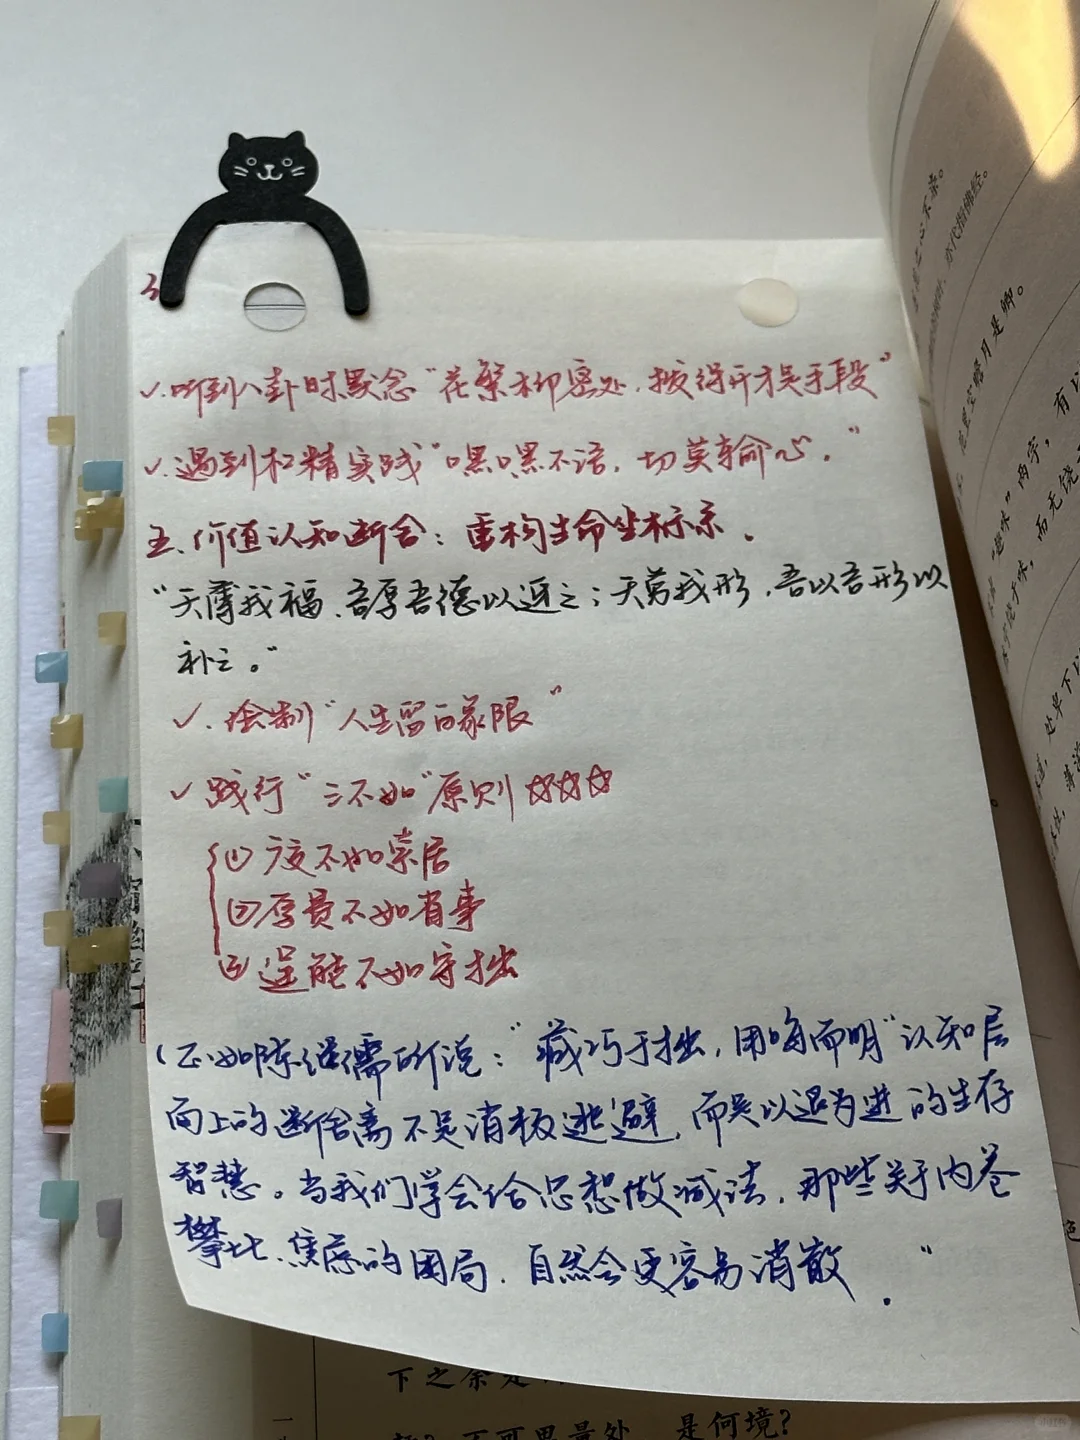 3
✓. 听到八卦时默念“花繁柳密处，拨得开才是手段”
✓. 遇到杠精实践“嘿嘿不语，切莫输心。”
五、价值认知断舍：重构生命坐标系.
“天薄我福、吾厚吾德以迓之；天劳我形，吾以吾形以
补之。”
✓. 绘制“人生留白象限”
✓ 践行“三不如”原则 ☆☆☆
① 广交不如索居
② 厚费不如省事
③ 逞能不如守拙
（正如陈继儒所说：“藏巧于拙，用晦而明”认知层
面上的断舍离不是消极逃避，而是以退为进的生存
智慧。当我们学会给思想做减法，那些关于内卷
攀比、焦虑的困局，自然会更容易消散.”
花里空瞻月是卿。
“趣味”两字，有以
下之奈
是何境？